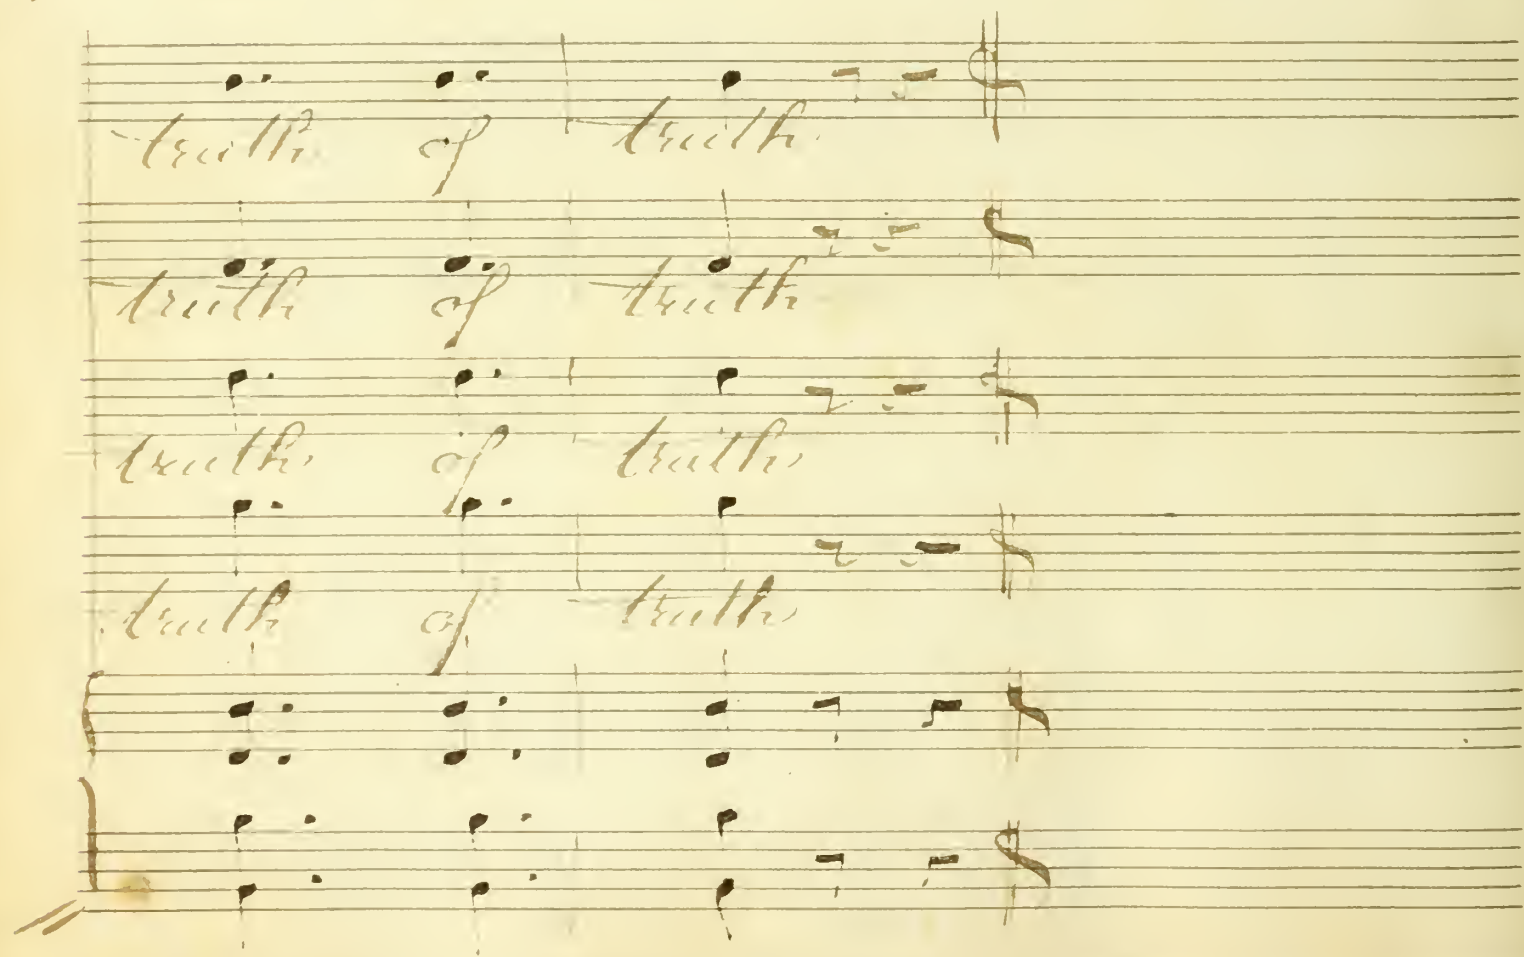 truth of truth
truth of truth
truth of truth
truth of truth